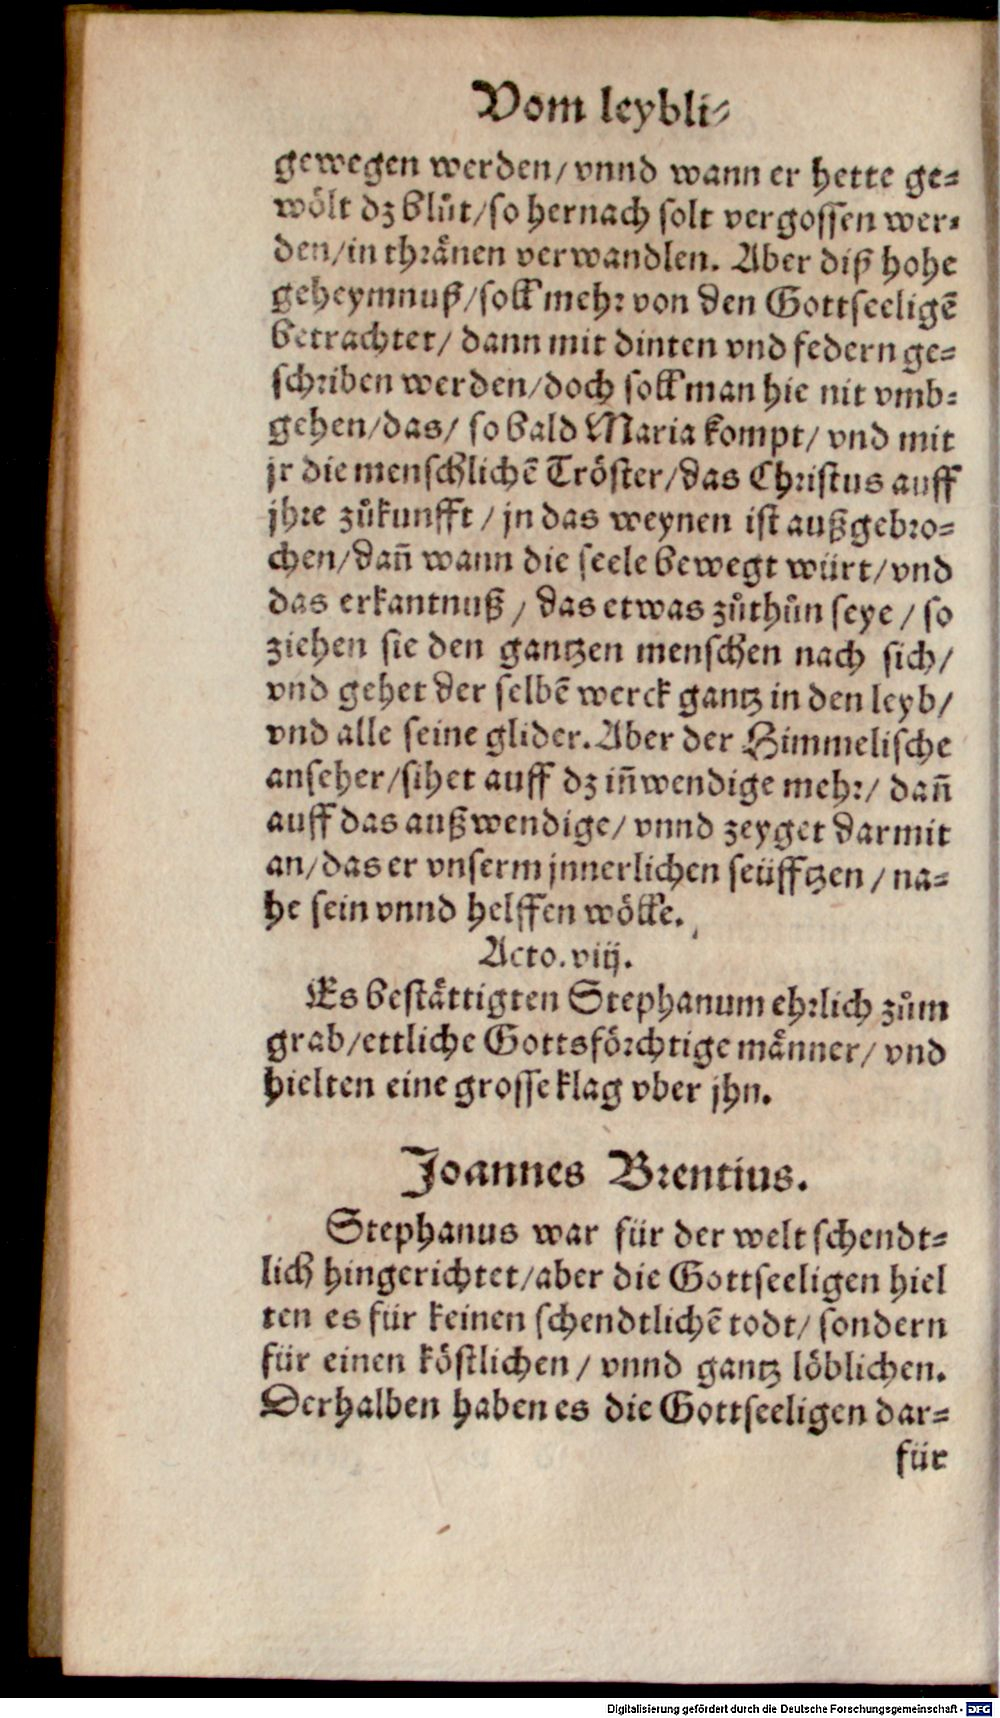 Vom leybli⸗
gewegen werden/ vnnd wann er hette ge⸗
wölt dz blůt/ so hernach solt vergossen wer⸗
den/ in thränen verwandlen. Aber diß hohe
geheymnuß/ soll mehr von den Gottseeligē
betrachtet/ dann mit dinten vnd federn ge⸗
schriben werden/ doch soll man hie nit vmb⸗
gehen/ das/ so bald Maria kompt/ vnd mit
jr die menschlichē Tröster/ das Christus auff
jhre zůkunfft / jn das weynen ist außgebro⸗
chen/ dañ wann die seele bewegt würt/ vnd
das erkantnuß / das etwas zůthůn seye / so
ziehen sie den gantzen menschen nach sich/
vnd gehet der selbē werck gantz in den leyb/
vnd alle seine glider. Aber der Himmelische
anseher/ sihet auff dz iñwendige mehr/ dañ
auff das außwendige/ vnnd zeyget darmit
an/ das er vnserm jnnerlichen seüfftzen / na⸗
he sein vnnd helffen wölle.
Acto. viij.
Es bestättigten Stephanum ehrlich zům
grab/ ettliche Gottsförchtige männer/ vnd
hielten eine grosse klag vber jhn.
Joannes Brentius.
Stephanus war für der welt schendt⸗
lich hingerichtet/ aber die Gottseeligen hiel
ten es für keinen schendtlichē todt/ sondern
für einen köstlichen / vnnd gantz löblichen.
Derhalben haben es die Gottseeligen dar⸗
für
Digitalisierung gefördert durch die Deutsche Forschungsgemeinschaft - DFG